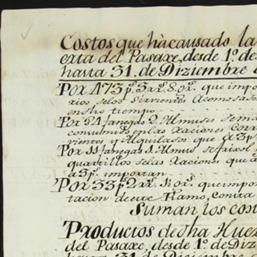 Costos que ha causado la
erta del Pasaxe, desde 1º. de
hasta 31. de Diziembre
Por 173 p.s 3 xx.s 8 or.s que impo
rios de los Sirvientes Acomodado
en dho tiempo
Por 21 fanegas 2 Almudes
consumidos en las Raciones
y Alquilados que a 3 p.s
Por 11 fanegas 1. Almud
quartillos de las Raciones que
3 p.s importan
Por 33 p.s 2 xx.s 11 or.s que impor
tacion de este Ramo, conta
Suman los cost
Productos de dha Hue
del Pasaxe, desde 1º. de Diz
31 de Diziembre